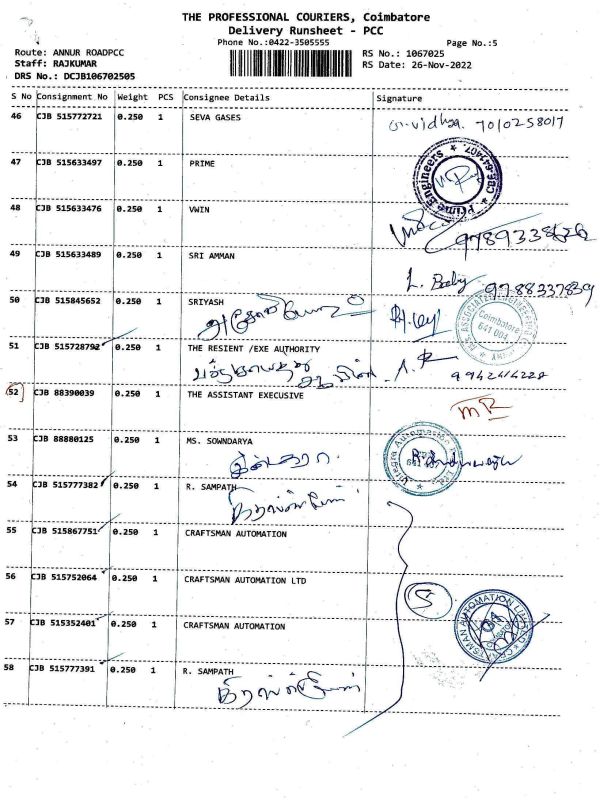 THE PROFESSIONAL COURIERS, Coimbatore
Delivery Runsheet - PCC
Phone No.:0422-3505555
Page No.:5
Route: ANNUR ROADPCC
RS No.: 1067025
Staff: RAJKUMAR
RS Date: 26-Nov-2022
DRS No.: DCJB106702505
S No Consignment No Weight PCS Consignee Details Signature
46 CJB 515772721 0.250 1 SEVA GASES
vidhya. 7010258017
47 CJB 515633497 0.250 1 PRIME
Prime Engineers * CBE-641407. *
48 CJB 515633476 0.250 1 VWIN
49 CJB 515633489 0.250 1 SRI AMMAN
L. Baby 9788337839
50 CJB 515845652 0.250 1 SRIYASH
Coimbatore
641 004
51 CJB 515728792 0.250 1 THE RESIENT /EXE AUTHORITY
52 CJB 88390039 0.250 1 THE ASSISTANT EXECUSIVE
53 CJB 88880125 0.250 1 MS. SOWNDARYA
54 CJB 515777382 0.250 1 R. SAMPATH
55 CJB 515867751 0.250 1 CRAFTSMAN AUTOMATION
56 CJB 515752064 0.250 1 CRAFTSMAN AUTOMATION LTD
5
57 CJB 515352401 0.250 1 CRAFTSMAN AUTOMATION
CRAFTSMAN AUTOMATION LIMITED
58 CJB 515777391 0.250 1 R. SAMPATH